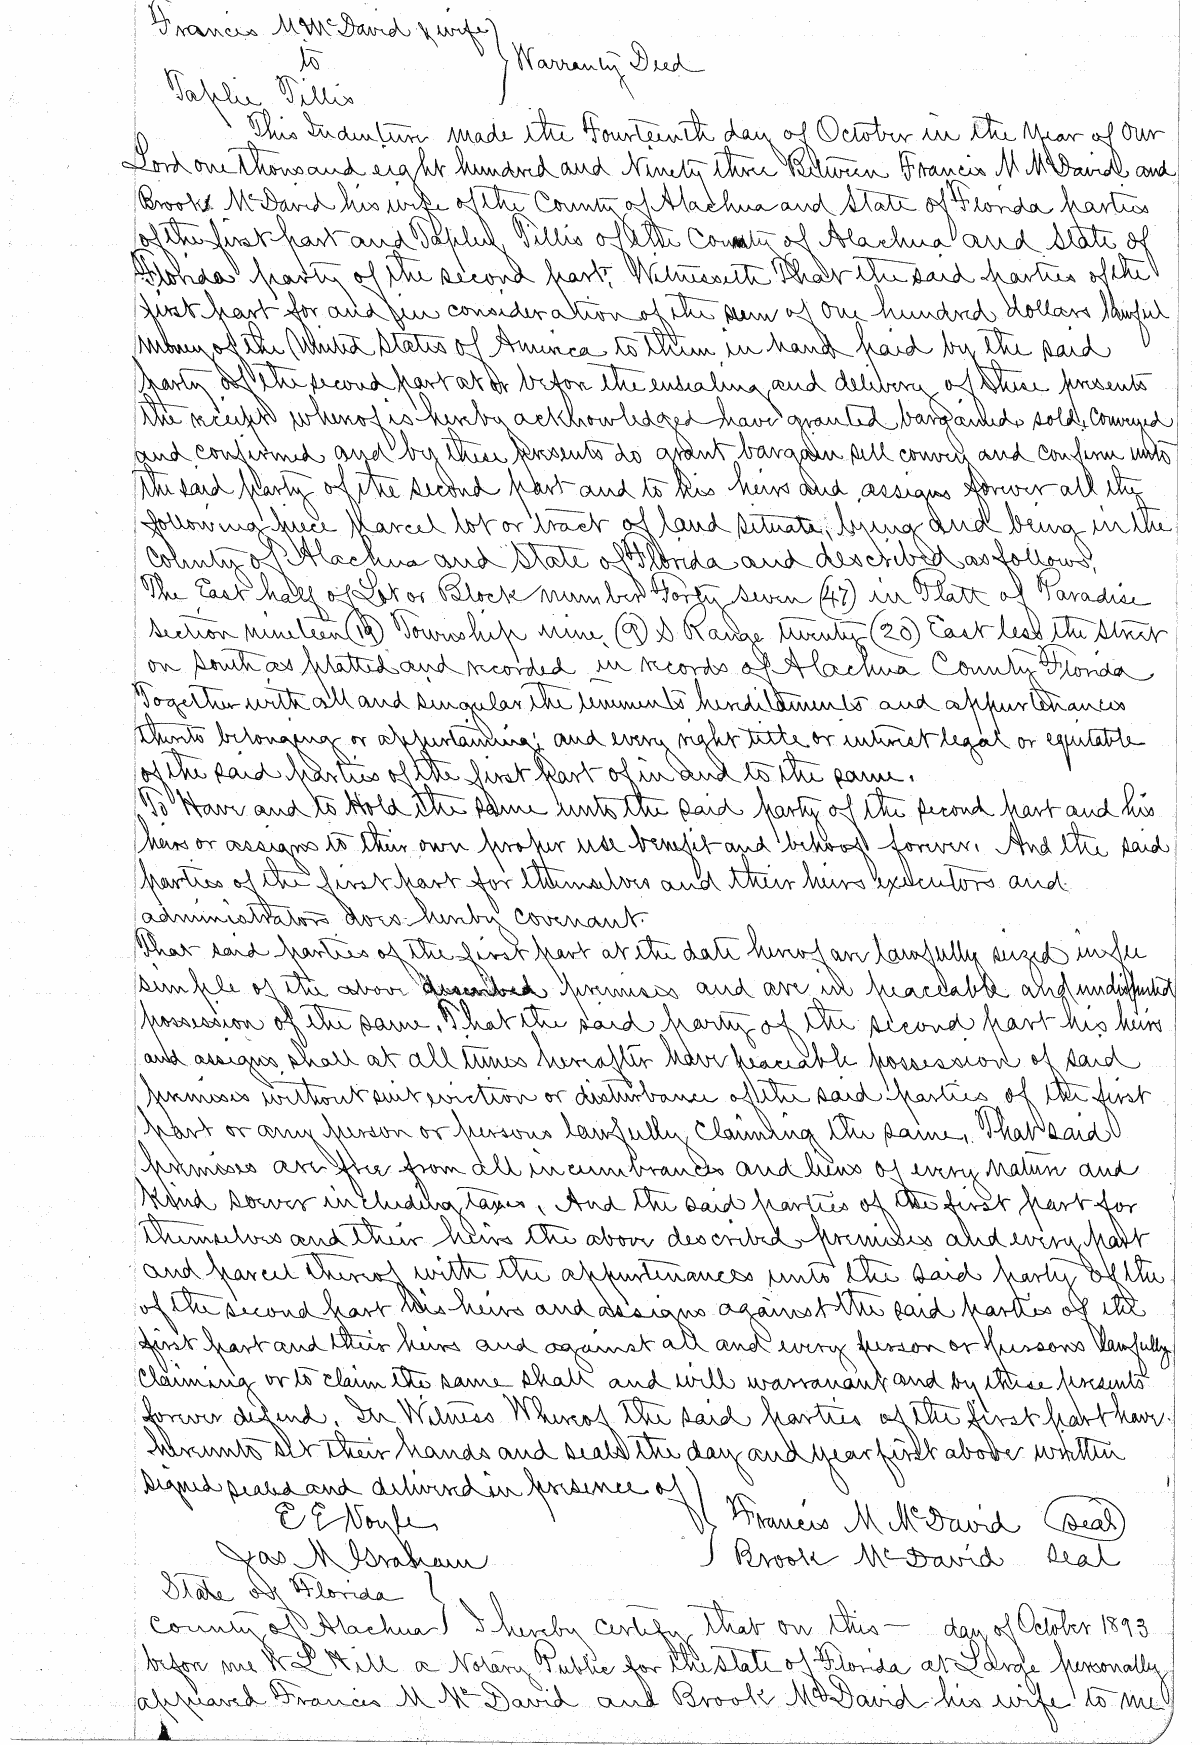 Francis M McDavid & wife
to
Warranty Deed
Taplie Tillis
This Indenture made the Fourteenth day of October in the Year of Our
Lord one thousand eight hundred and Ninety three Between Francis M McDavid and
Brook McDavid his wife of the County of Alachua and State of Florida parties
of the first part and Tillis of the County of Alachua and State of
Florida party of the second part, Witnesseth That the said parties of the
first part for and in consideration of the sum of One hundred dollars lawful
Money of the United States of America to them in hand paid by the said
party of the second part at or before the ensealing and delivery of these presents
the receipt whereof is hereby acknowledged have granted bargained sold, Conveyed
and confirmed and by these presents do grant bargain sell convey and confirm unto
the said party of the second part and to his heirs and assigns forever all the
following piece parcel lot or tract of land situate, lying and being in the
County of Alachua and State of Florida and described as follows,
The East half of Lot or Block number Forty seven (47) in Platt of Paradise
section nineteen (19) Township nine (9) S Range twenty (20) East less the Street
on South as platted and recorded in records of Alachua County Florida
Together with all and singular the tenements hereditaments and appurtenances
thereto belonging or appertaining; and every right title or interest legal or equitable
of the said parties of the first part of in and to the same.
To Have and to Hold the same unto the said party of the second part and his
heirs or assigns to their own proper use benefit and behoof forever. And the said
parties of the first part for themselves and their heirs executors and
administrators does hereby covenant.
That said parties of the first part at the date hereof are lawfully seized in fee
simple of the above described premises and are in peaceable and undisputed
possession of the same. That the said party of the second part his heirs
and assigns shall at all times hereafter have peaceable possession of said
premises without suit eviction or disturbance of the said parties of the first
part or any person or persons lawfully claiming the same. That said
premises are free from all incumbrances and liens of every nature and
kind soever including taxes. And the said parties of the first part for
themselves and their heirs the above described premises and every part
and parcel thereof with the appurtenances unto the said party of the
of the second part his heirs and assigns against the said parties of the
first part and their heirs and against all and every person or persons lawfully
claiming or to claim the same shall and will warranant and by these presents
forever defend. In Witness Whereof the said parties of the first part have
hereunto set their hands and seals the day and year first above written
signed sealed and delivered in presence of
E E Voyle
Francis M McDavid seal
Jas M Graham
Brook McDavid seal
State of Florida
County of Alachua I hereby certify that on this — day of October 1893
before me W L Hill a Notary Public for the State of Florida at Large personally
appeared Francis M McDavid and Brook McDavid his wife to me